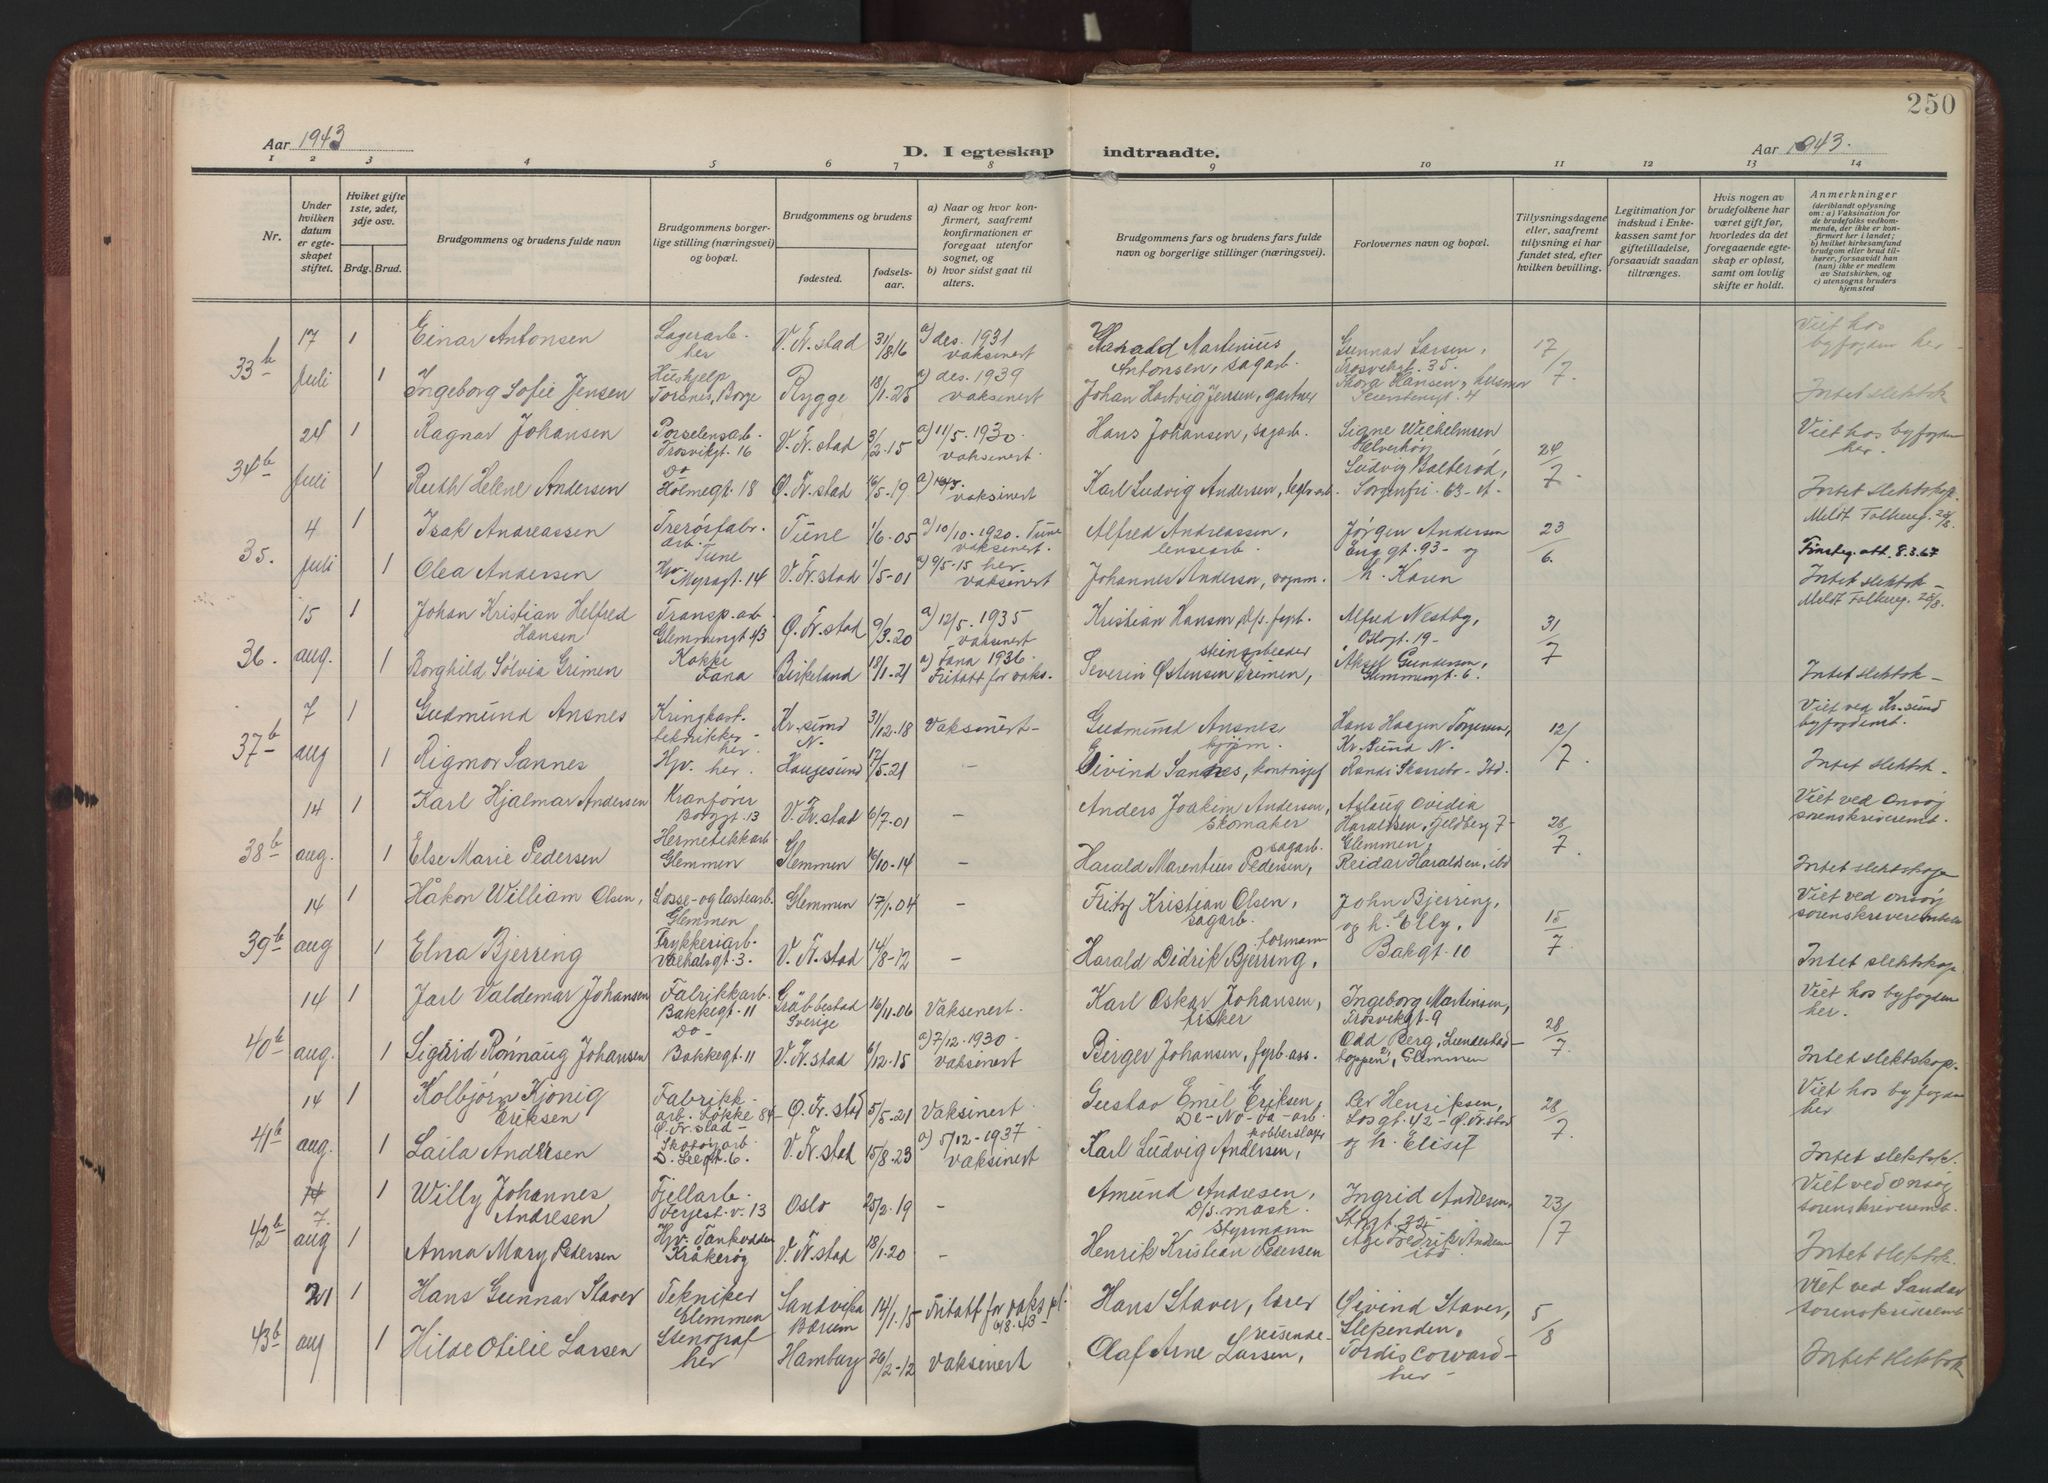 250
Aar 1943
D. I egteskap indtraadte.
Aar 1943.
1 2 3 4 5 6 7 8 9 10 11 12 13 14
Nr.
Under hvilken datum er egteskapet stiftet.
Hviket gifte 1ste, 2det, 3dje osv.
Brdg. Brud.
Brudgommens og brudens fulde navn
Brudgommens borgerlige stilling (næringsvei) og bopæl.
Brudgommens og brudens
fødested.
fødselsaar.
a) Naar og hvor konfirmert, saafremt konfirmationen er foregaat utenfor sognet, og
b) hvor sidst gaat til alters.
Brudgommens fars og brudens fars fulde navn og borgerlige stillinger (næringsvei).
Forlovernes navn og bopæl.
Tillysningsdagene eller, saafremt tillysning ei har fundet sted, efter hvilken bevilling.
Legitimation for indskud i Enkekassen samt for giftetilladelse, forsaavidt saadan tiltrænges.
Hvis nogen av brudefolkene har været gift før, hvorledes da det foregaaende egteskap er opløst, samt om lovlig skifte er holdt.
Anmerkninger
(deriblandt oplysning om: a) Vaksination for de brudefolks vedkommende, der ikke er konfirmert her i landet; b) hvilket kirkesamfund brudgom eller brud tilhører, forsaavidt han (hun) ikke er medlem av Statskirken, og c) utensogns bruders hjemsted
33b 17 Juli 1 Einar Antonsen Lagerarb. her V. Fr.stad 31/8.16 a) des. 1931 vaksinert Harald Martinius Antonsen, sagarb. Gunnar Larsen, Trosvikst. 35. 17/7. Viet hos byfogden her
1 Ingeborg Sofie Jensen Hushjelp Torsnes, Borge Rygge 18/1.25 a) des. 1939 vaksinert Johan Hartvig Jensen, gartner Thora Hansen, husmor Intet slektsk
34b 24 Juli 1 Ragnar Johansen Porselensarb. Trosvikgt. 16 V. Fr.stad 3/2.15 a) 11/5. 1930. vaksinert. Hans Johansen, sagarb. Signe Wilhelmsen 24/7. Viet hos byfogden her.
1 Ruth Helene Andersen Do Holmegt. 18 Ø. Fr.stad 16/5.19 vaksinert Karl Ludvig Andersen, Ludvig Balterød, Sorgenfri. 63-A- Intet slektskap.
35. 4 Juli 1 Isak Andreassen Tresfabr. arb. Tune Tune 1/6.05 a) 10/10.1920. Tune vaksinert. Alfred Andreassen, lensearb. Jørgen Andersen Enggt. 93- og 23/6 Meldt Folkereg. 28/8.
Tinsteg. att. 8.3.67
1 Olea Andersen Hjv. Myragt. 14 V. Fr.stad 1/5-01 a) 9/5.15 her. vaksinert Johannes Andersen, vognm. h. Karen Intet slektsk-
Meldt Folkereg. 28/8.
36. 15 aug. 1 Johan Kristian Helfred Hansen Transp.arb. Glemmengt 43 Ø. Fr.stad 9/3.20 a) 12/5. 1935 vaksinert Kristian Hansen, d/s. fyrb. Alfred Nestby, Oslogt. 19- 31/7
1 Borghild Sølvia Grimen Kokke Fana Birkeland 18/1.21 a) Fana 1936. Fritatt for vaks. Severin Østensen Grimen, stenarbeider Aksel Gundersen, Glemmengt. 6. Intet slektsk-
37b 7 aug 1 Gudmund Ansnes Kringkast. tekniker her. Kr.sund N. 31/12.18 Vaksinert- Gudmund Ansnes Hans Haagen Torgersen, Kr.sund N. 12/7. Viet ved Kr.sund byfogdemt.
1 Rigmor Sannes Hjv. her. Haugesund 17/5.21 - Eivind Sannes, kontorsjef Randi Skarrebo- Ibd Intet slektsk.
38b 14 aug. 1 Karl Hjalmar Andersen Kranfører Borggt. 13 V. Fr.stad 6/7.01 - Anders Joakim Andersen, skomaker Aslaug Ovidia Haraldsen, Fjeldberg 7- Glemmen, 28/7. Viet ved Onsøy sorenskriveremt.
1 Else Marie Pedersen Hermetikkarb Glemmen Glemmen 10/10-14 - Harald Marentius Pedersen, sagarb. Reidar Haraldsen, ibd Intet slektskap
39b 14 aug 1 Håkon William Olsen, Losse- og lastearb. Glemmen Glemmen 17/1.04 - Fritz Kristian Olsen, sagarb. John Bjerring, og h. Elly, Bakgt. 10 15/7. Viet ved Onsøy sorenskriverembete
1 Elna Bjerring Trykkeriarb. Valhalsgt. 3. V. Fr.stad 14/8-12 - Harald Didrik Bjerring, formann Intet slektskap.
40b 14 aug. 1 Jarl Valdemar Johansen Fabrikkarb. Bakkegt. 11 Gräbbestad Sverige 16/11.06 Vaksinert. Karl Oskar Johansen, fisker Ingeborg Martinsen, Trosvikgt. 9 28/7. Viet hos byfogden her.
1 Sigrid Rønnaug Johansen Do- Bakkegt. 11 V. Fr.stad 6/12.15 a) 7/12.1930. Vaksinert Birger Johansen, fyrb.ass. Odd Berg, Lundestad- toppen, Glemmen Intet slektskap.
41b 14 aug. 1 Kolbjørn Kjønig Eriksen Fabrikk- arb. Løkke 84- Ø. Fr.stad- Ø. Fr.stad 5/5.21 Vaksinert Gustav Emil Eriksen, De-No-Fa-arb. Per Henriksen, Losgt. 42- Ø. Fr.stad og h. Elisif 28/7. Viet hos byfogden her
1 Laila Andersen Skotøiarb. V. Fr.stad 15/8.23 a) 5/12-1937. vaksinert Karl Ludvig Andersen, kobberslager Intet slektsk.
42b 14 7. aug 1 Willy Johannes Andresen Fjellarb. Verjest.v. 13 Oslo 25/2.19 - Amund Andresen, D/s. mask. Ingrid Andresen, Storgt. 23/7 Viet ved Onsøy sorenskriveremt.
1 Anna Mary Pedersen Hjv. Tankodden Kråkerøy V. Fr.stad 18/1.20 - Henrik Kristian Pedersen Styrmann Åge Fredrik Andresen ibd Intet slektsk.
43b 21 aug 1 Hans Gunnar Staver Tekniker Glemmen Sandvika Bærum 14/1.15 Fritatt for vaks pl. 6/8.43 Hans Staver, lærer Øivind Staver, Slependen, 5/8 Viet ved Sandar sorenskriveremt
1 Hilde Otilie Larsen Stenograf her Hamburg 26/2-12 vaksinert Olaf Arne Larsen, reisende- Tordis Coward- her- Intet slektsk